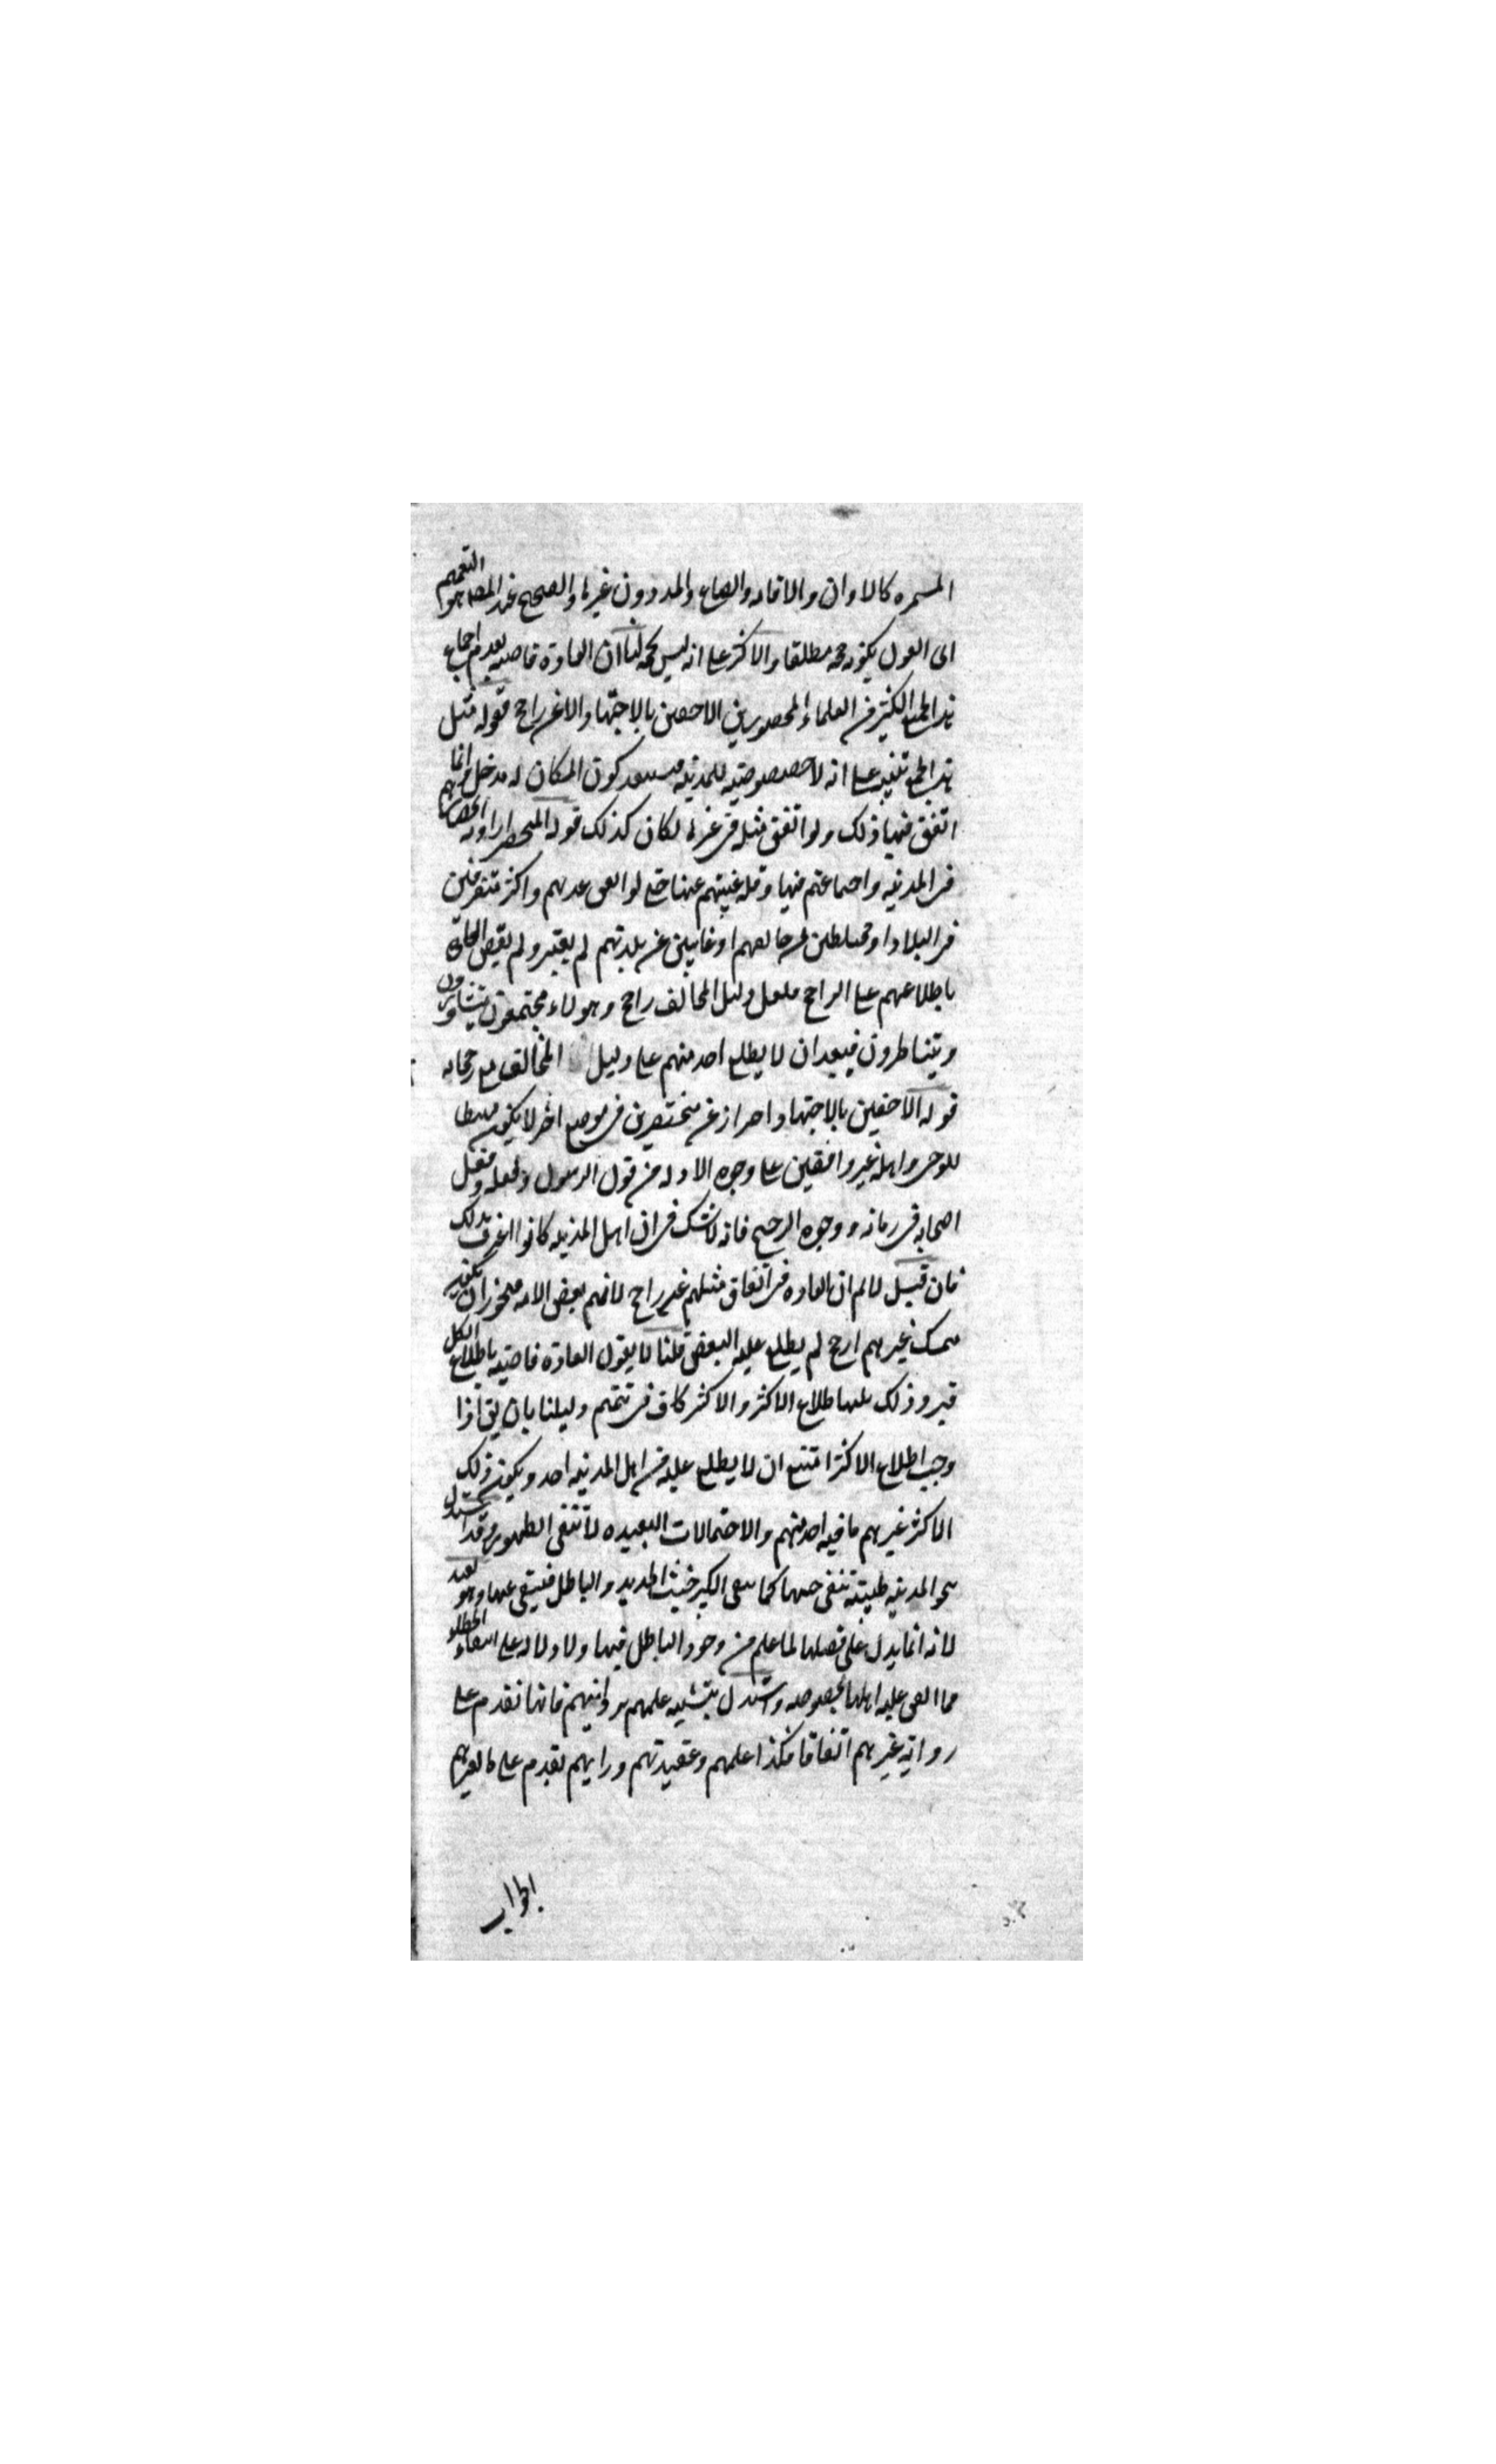 المستمره كالاذان والاقامه والصاع والمد دون غيرها والصحيح عند المص هو التعميم
الى القول بكونه حجه مطلقا والاكثر على انه ليس بحجه لنا ان العادة قاضيه بعدم اجماع
هذا الجمع الكثير من العلماء المحصورين الاحقين بالاجتهاد الا عن راجح قوله مثل
هذا الجمع تنبيه على انه لا خصوصية للمدينه كون المكان له مدخل انما
اتفق فيها ذلك ولو اتفق مثله في غيرها لكان كذلك قوله المنحصر اراد به انحصارهم
فى المدينه واجتماعهم فيها وقله غيبتهم عنها حتى لو اتفق عددهم واكثر متفرقين
فى البلاد او مختلطين او غايبين عن بلدتهم لم يعتبر ولم يقض العادة
باطلاعهم على الراجح فلعل دليل المخالف راجح وهولاء مجتمعون يتشاورون
ويتناظرون فيبعد ان لا يطلع احد منهم على دليل المخالف مع رجحانه
قوله الاحقين بالاجتهاد احراز عن منحصرين فى موضع اخر لا يكون مهبطا
للوحى واهله غير واقفين على وجوه الادله من قول الرسول وفعله وفعل
اصحابه فى زمانه ووجوه الترجيح فانه لا شك فى ان اهل المدينه كانوا اعرف بذلك
فان قيل لا نم ان العاده فى اتفاق مثلهم عن راجح لانهم بعض الامه فيجوز ان يكون
متمسك غيرهم ارجح لم يطلع عليه البعض قلنا لا نقول العادة قاضيه باطلاع الكل
فيرد ذلك بل باطلاع الاكثر والاكثر كاف فى تتميم دليلنا بان يق اذا
وجب اطلاع الاكثر امتنع ان لا يطلع عليه من اهل المدينه احد ويكون ذلك
الاكثر غيرهم ما فيه احد منهم والاحتمالات البعيده لا تنفى الظهور وقد استدل
بنحو المدينه طيبته تنفى خبثها كما ينفى الكير خبث الحديد والباطل فينتفى عنها وهو بعيد
لانه انما يدل على فضلها لما علم من وجود الباطل فيها ولا دلاله على انتفاء الخطا
مما اتفق عليه اهلها بخصوصه واستدل بتشبيه علمهم بروايتهم فانها تقدم على
رواية غيرهم اتفاقا فكذا علمهم وعقيدتهم ورايهم تقدم على ما لغيرهم
الجواب